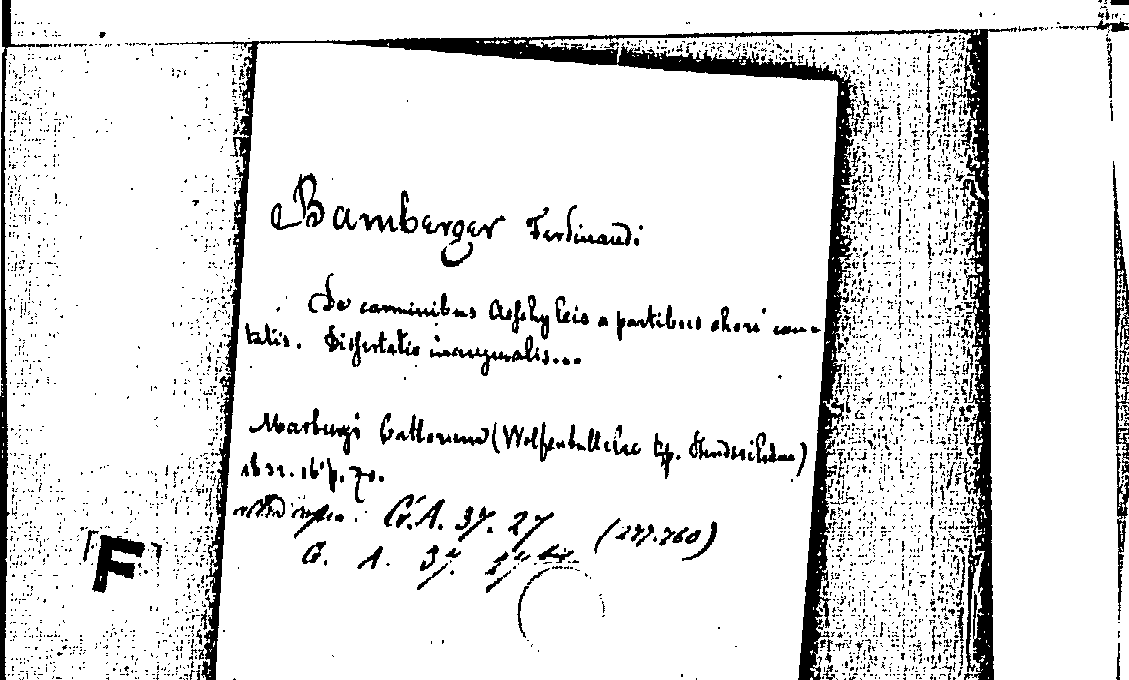 Bamberger Ferdinandi
De carminibus Aeschyleis a partibus chori can-
tatis. Dissertatio inauguralis...
Marburgi Cattorum (Wolfenbuttelae typ. )
1832. 16° p. 70.
G. A. 37. 27 (277.760)
G. A. 37. 27
F